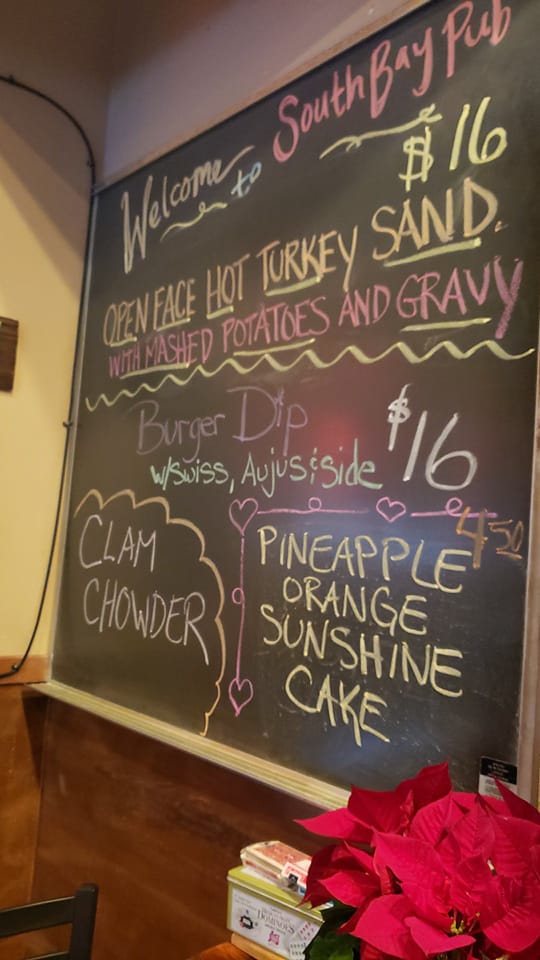 Welcome to South Bay Pub
$16
OPEN FACE HOT TURKEY SAND.
WITH MASHED POTATOES AND GRAVY
Burger Dip $16
w/Swiss, Aujus & side
CLAM
CHOWDER
4.50
PINEAPPLE
ORANGE
SUNSHINE
CAKE
DOMINOES